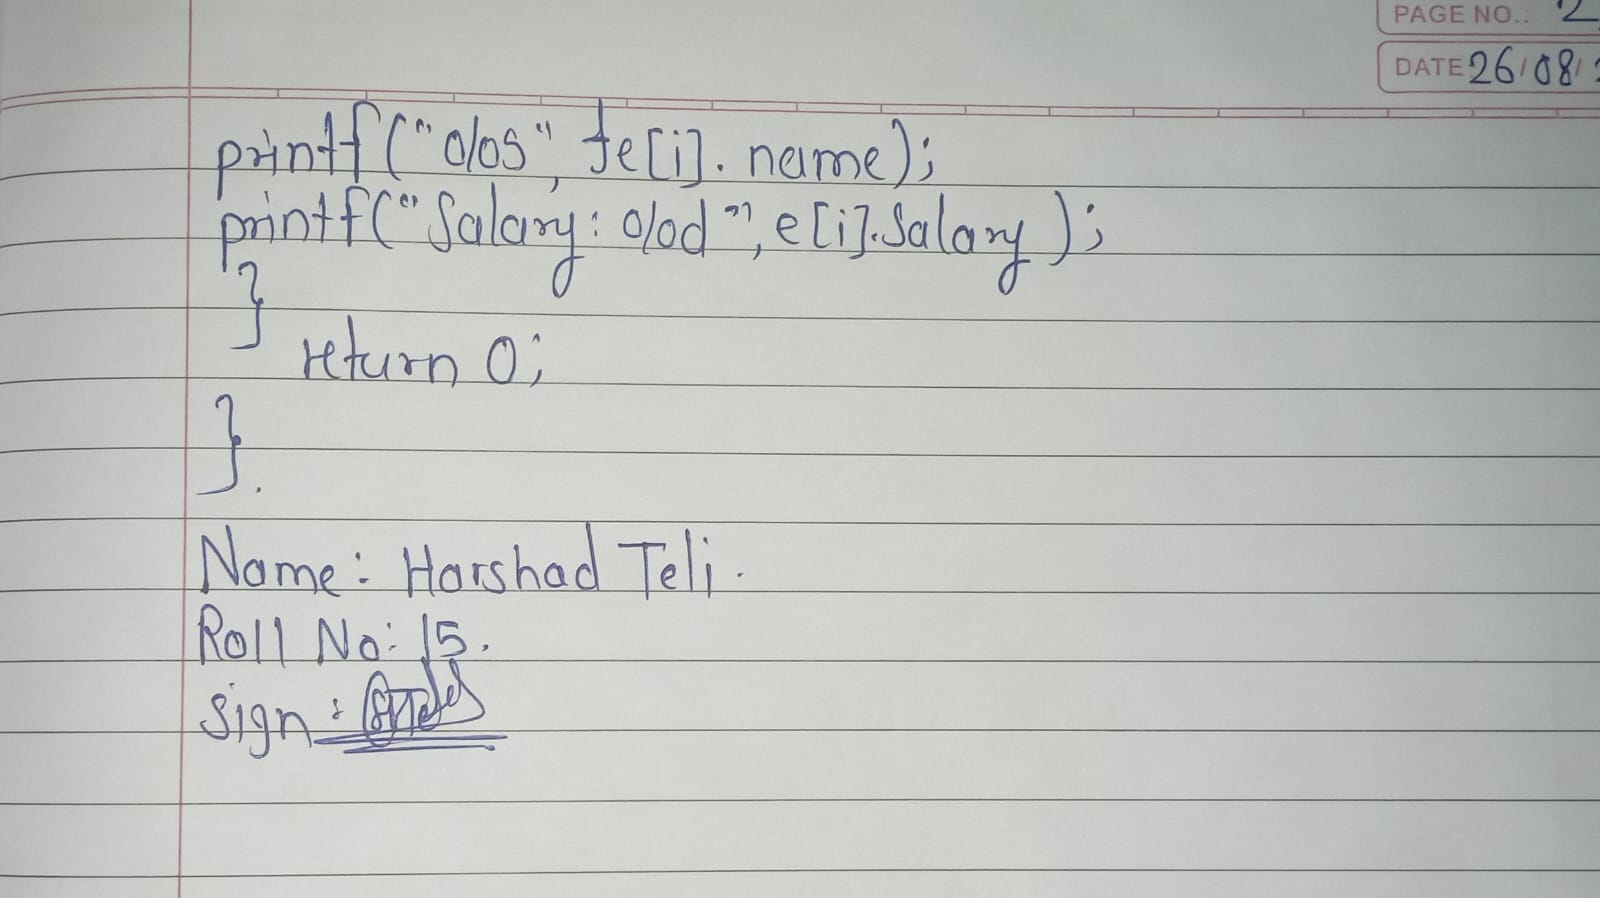 PAGE NO.: 2
DATE 26/08/
printf("%s", &e[i].name);
printf("Salary: %d", e[i].Salary);
}
return 0;
}.
Name: Harshad Teli.
Roll No: 15.
Sign: